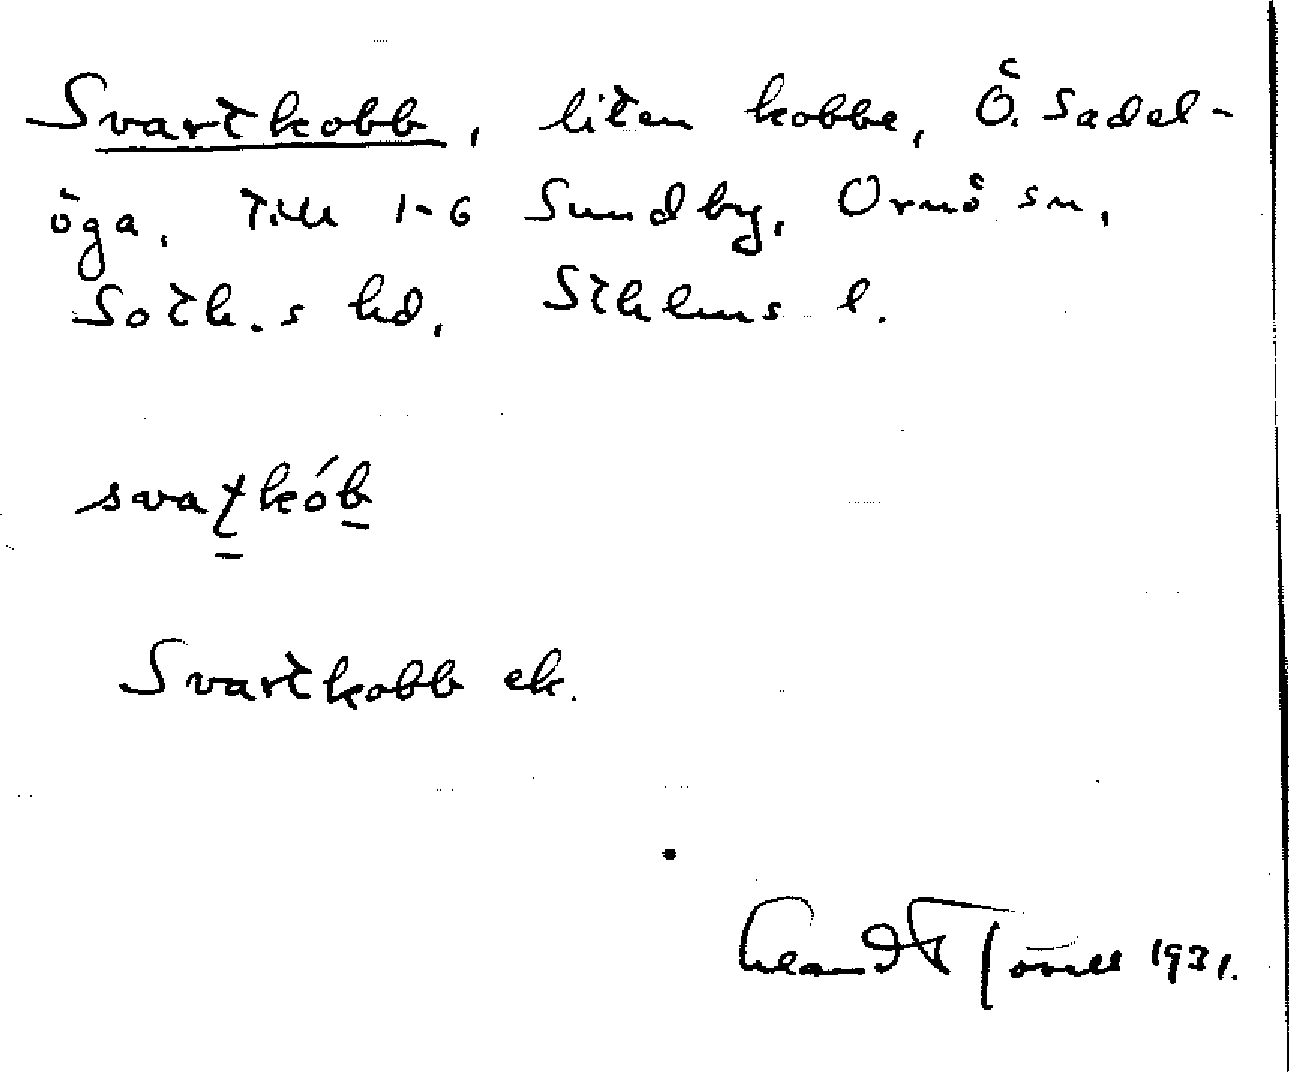 Svartkobb, liten kobbe, Ö. Sadel-
öga, till 1-6 Sundby, Ornö sn,
Soth.s hd, Sthlms l.
svaʈkób
Svartkobb ek.
1931.